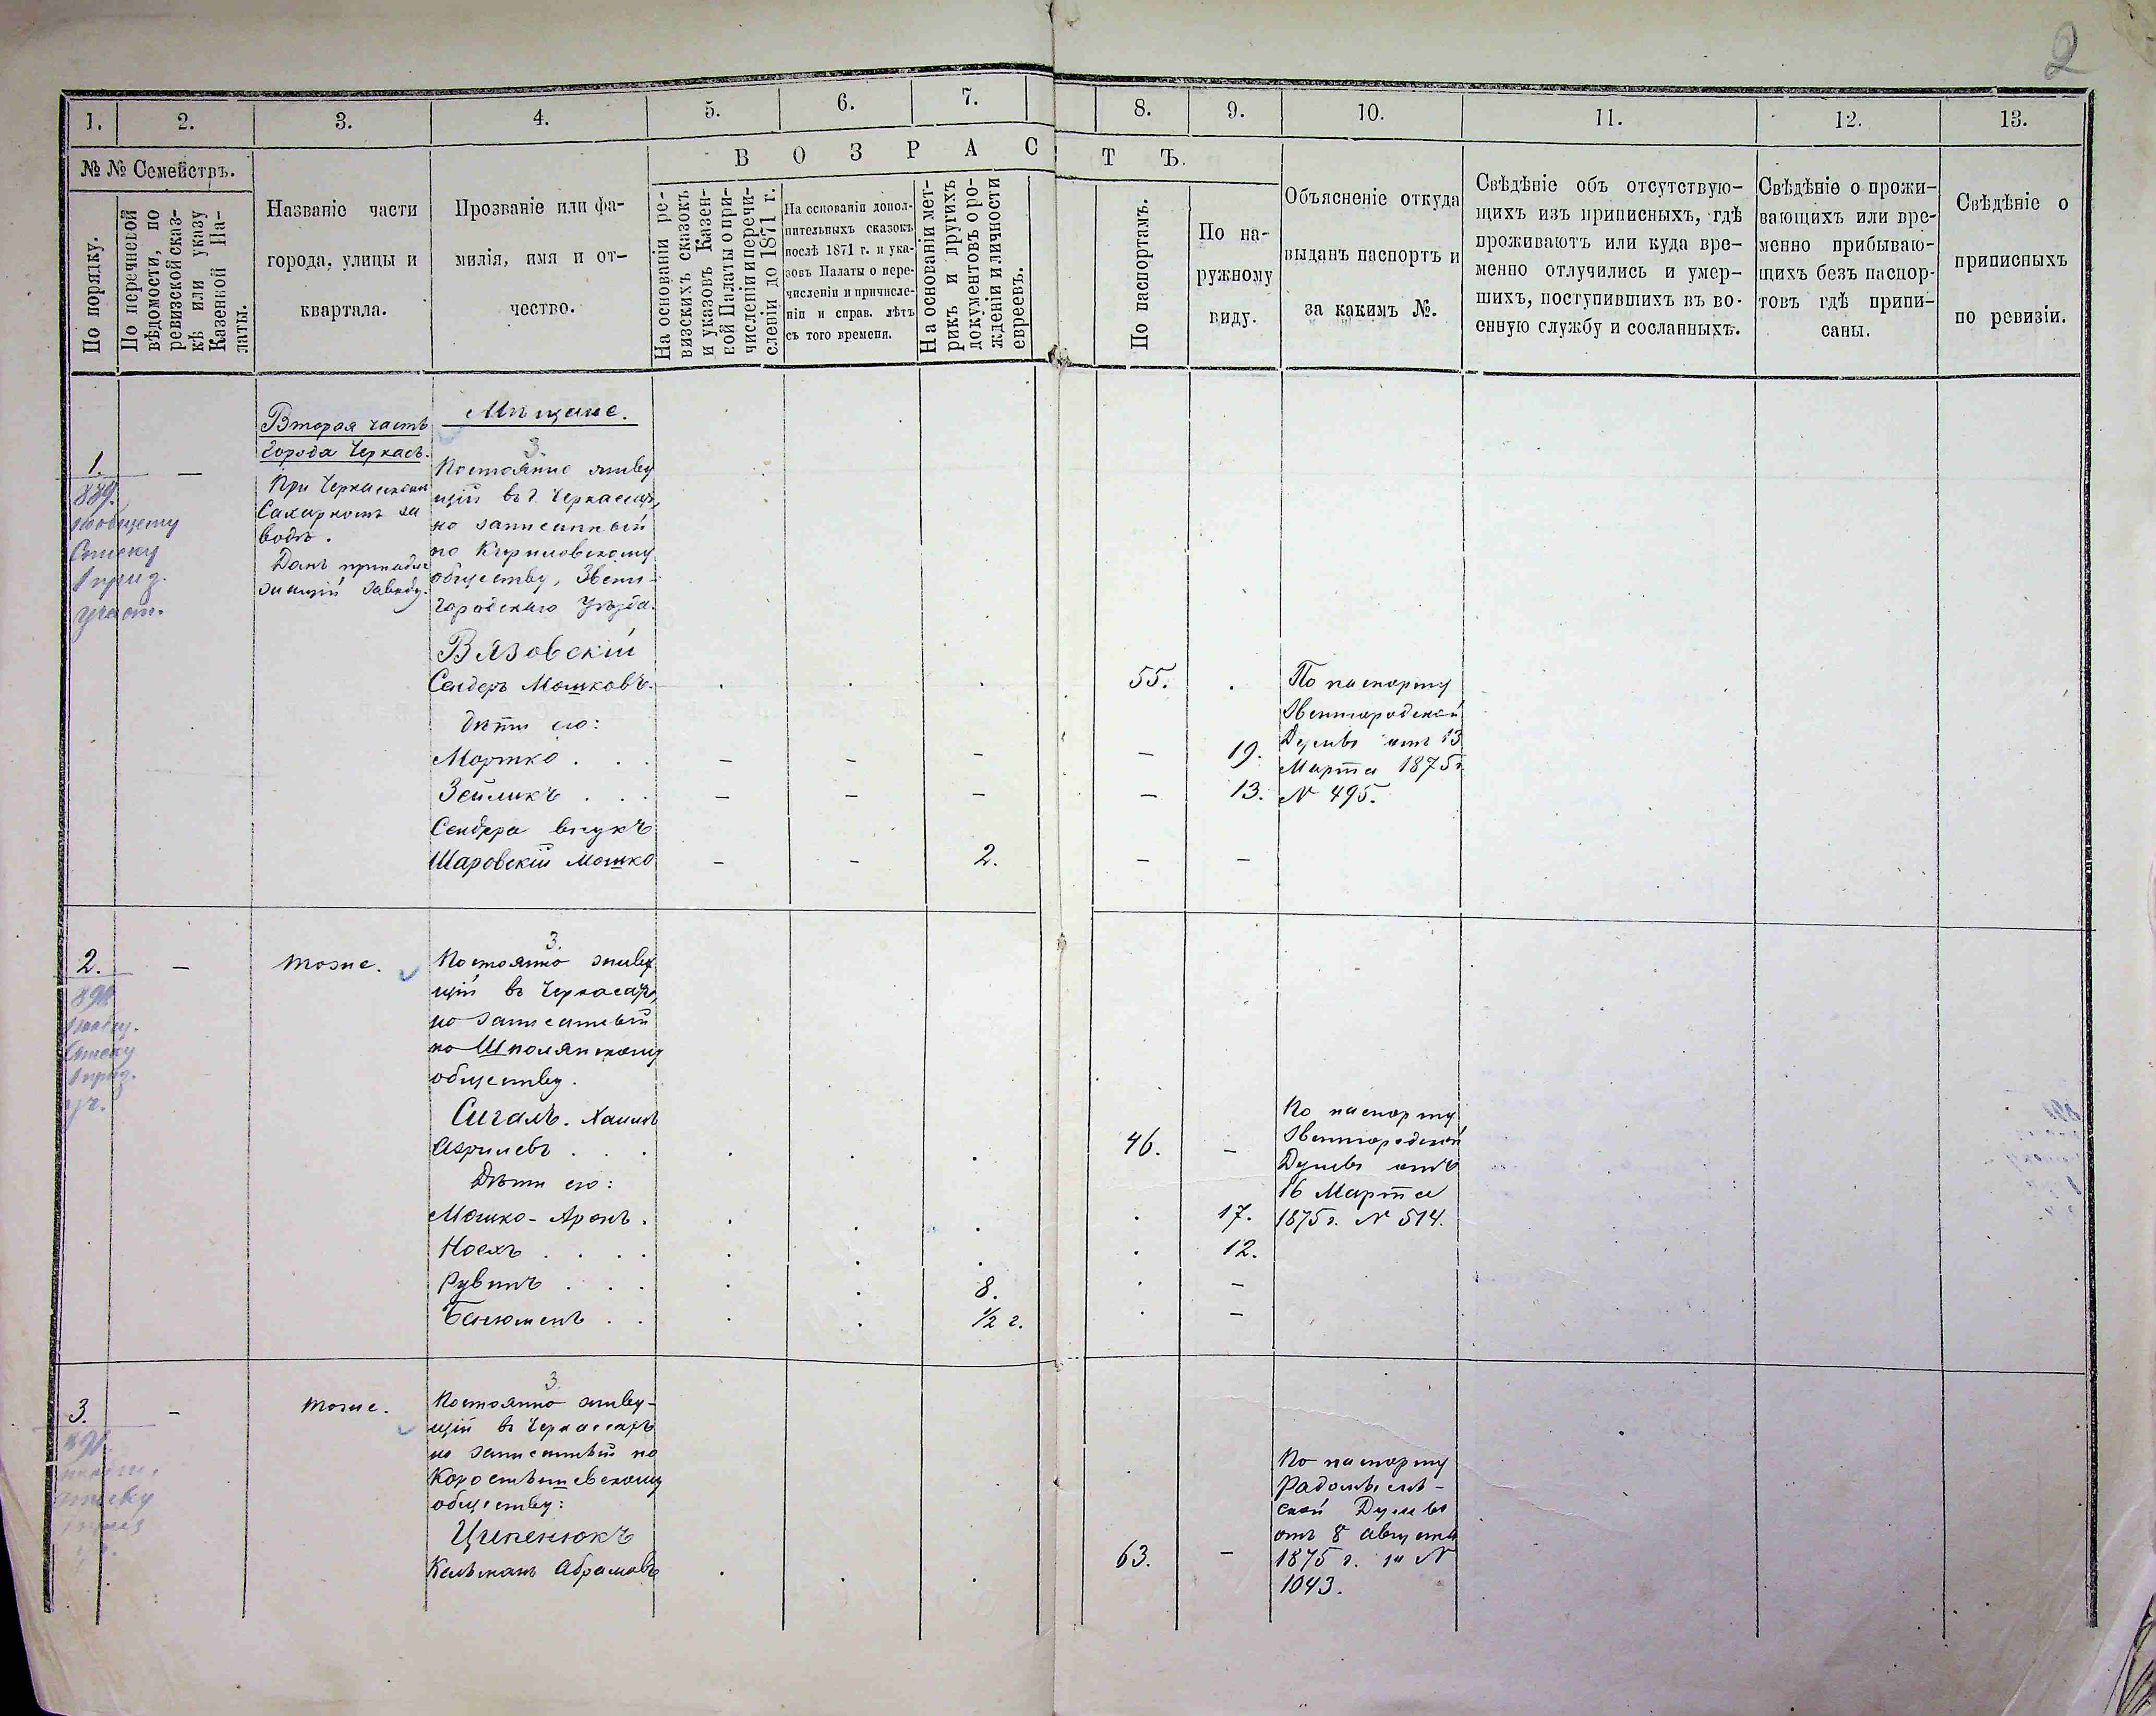 2
1. 2. 3. 4. 5. 6. 7. 8. 9. 10. 11. 12. 13.
№ № Семействъ.
По порядку.
По перечневой
вѣдомости, по
ревизской сказ-
кѣ или указу
Казенной Па-
латы.
Названіе части
города, улицы и
квартала.
Прозваніе или фа-
милія, имя и от-
чество.
В О З Р А С Т Ъ.
На основаніи ре-
визскихъ сказокъ
и указовъ Казен-
ной Палаты о при-
численіи и перечи-
сленіи до 1871 г.
На основаніи допол-
нительныхъ сказокъ
послѣ 1871 г. и ука-
зовъ Палаты о пере-
численіи и причисле-
ніи и справ. лѣтъ
съ того времени.
На основаніи мет-
рикъ и другихъ
документовъ о ро-
жденіи и личности
евреевъ.
По паспортамъ.
По на-
ружному
виду.
Объясненіе откуда
выданъ паспортъ и
за какимъ №.
Свѣдѣніе объ отсутствую-
щихъ изъ приписныхъ, гдѣ
проживаютъ или куда вре-
менно отлучились и умер-
шихъ, поступившихъ въ во-
енную службу и сосланныхъ.
Свѣдѣніе о прожи-
вающихъ или вре-
менно прибываю-
щихъ безъ паспор-
товъ гдѣ припи-
саны.
Свѣдѣніе о
приписныхъ
по ревизіи.
1. —
889.
по общему
Списку
1 приз.
участ.
Вторая часть
города Черкасъ.
При Черкаскомъ
Сахарномъ за
водѣ.
Домъ принадле
жащій заводу.
Мѣщане.
3.
Постоянно живу
щій въ г. Черкасахъ,
но записанный
по Кириловскому
обществу, Звени-
городскаго Уѣзда.
Вязовскій
Сендеръ Мошковъ. 55.
дѣти его:
Мортко . . . — — — — 19.
Зейликъ . . . — — — — 13.
Сендера внукъ
Шаровскій Мошко — — 2. — —
По паспорту
Звенигородской
Думы отъ 13
Марта 1875 г.
№ 495.
2. —
тоже.
3.
Постоянно живу
щій въ Черкасахъ,
но записанный
по Шполянскому
обществу.
Сигалъ. Хаимъ
. . . 46. —
Дѣти его:
Мошко-Аронъ. 17.
Носехъ . . . . 12.
Рувинъ . . . 8. —
Бенюменъ . . 1/2 г. —
По паспорту
Звенигородской
Думы отъ
16 Марта
1875 г. № 514.
3. —
тоже.
3.
Постоянно живу-
щій въ Черкассахъ
но записанный по
Коростышевскому
обществу:
Ципенюкъ
Кельманъ Абрамовъ 63. —
По паспорту
Радомысль-
ской Думы
отъ 8 августа
1875 г. за №
1043.